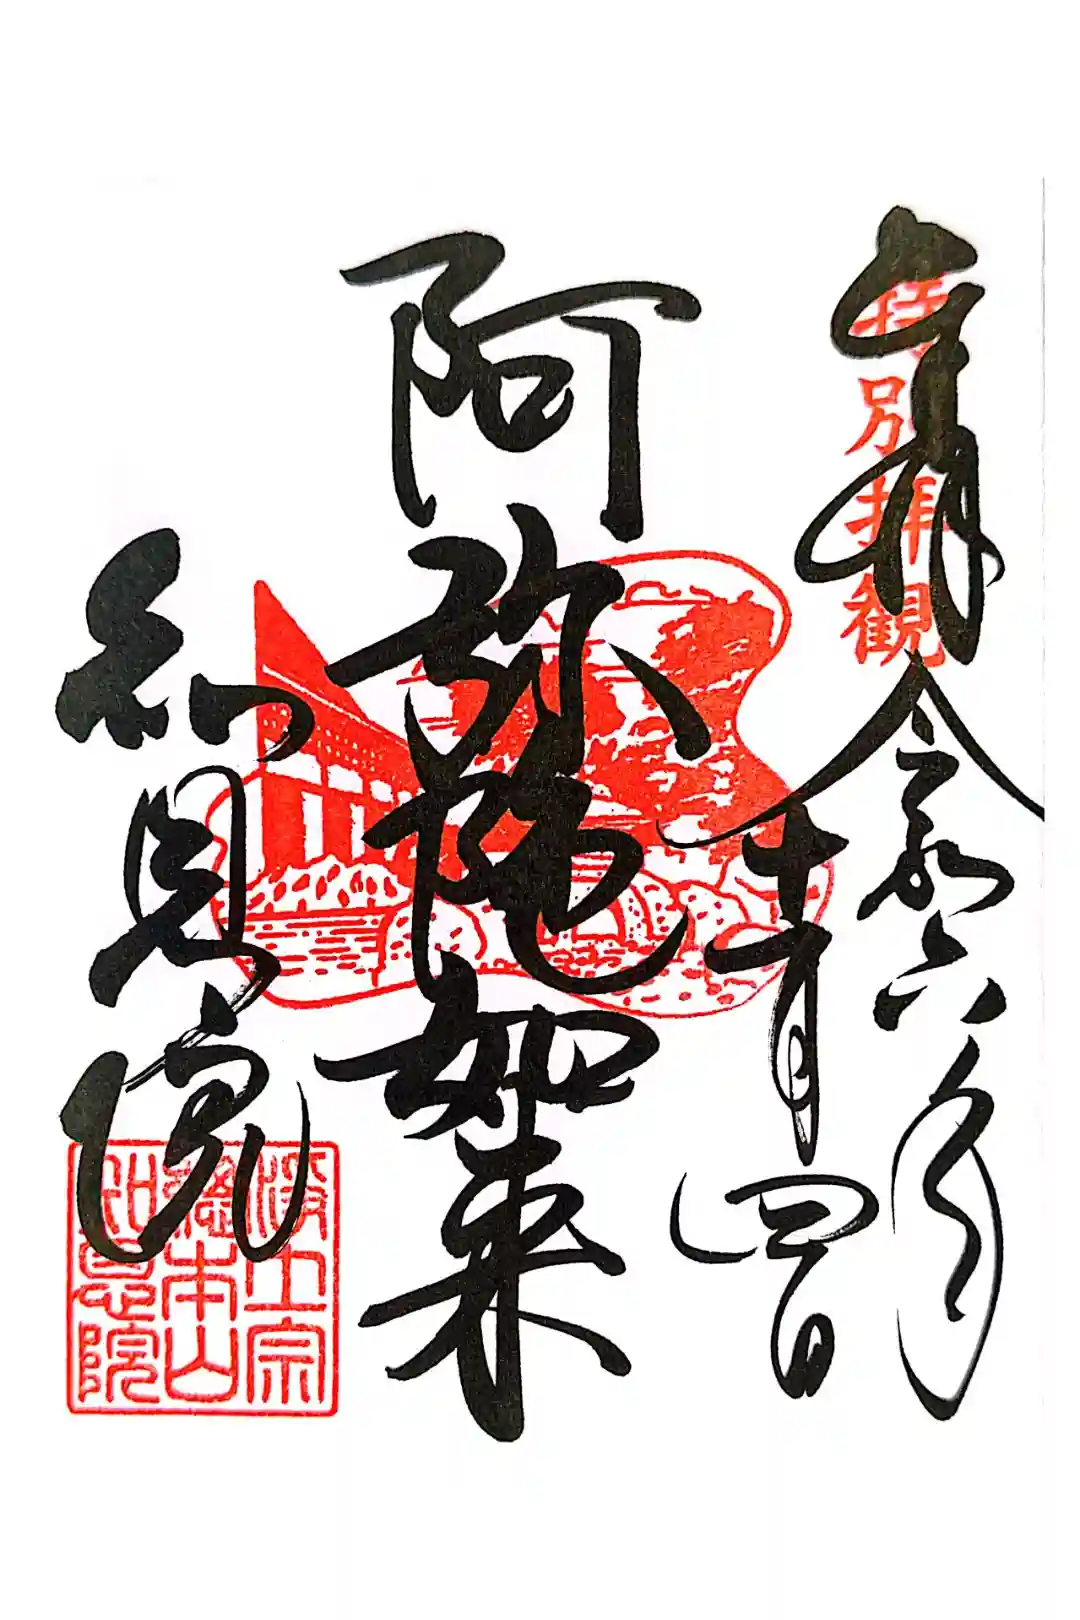 奉拝
特別拝観
令和六年
十月四日
阿弥陀如来
知恩院
浄土宗
総本山
知恩院